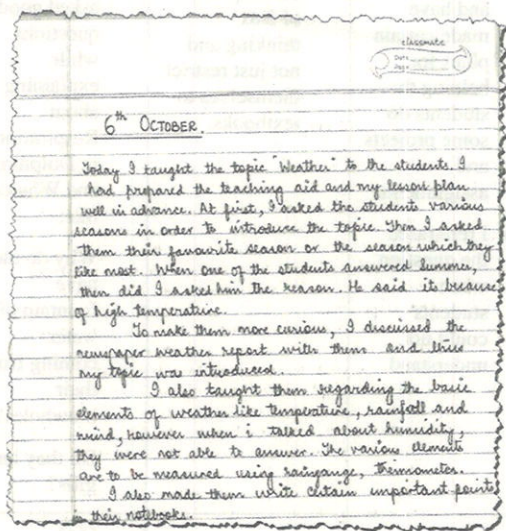 classmate
Date
Page
6th OCTOBER.
Today I taught the topic "Weather" to the students. I
had prepared the teaching aid and my lesson plan
well in advance. At first, I asked the students various
seasons in order to introduce the topic. Then I asked
them their favourite season or the season which they
like most. When one of the students answered Summer,
then did I asked him the reason. He said its because
of high temperature.
To make them more curious, I discussed the
newspaper weather report with them and thus
my topic was introduced.
I also taught them regarding the basic
elements of weather like temperature, rainfall and
wind, however when i talked about humidity,
they were not able to answer. The various elements
are to be measured using raingauge, thermometer.
I also made them write certain important points
in their notebooks.